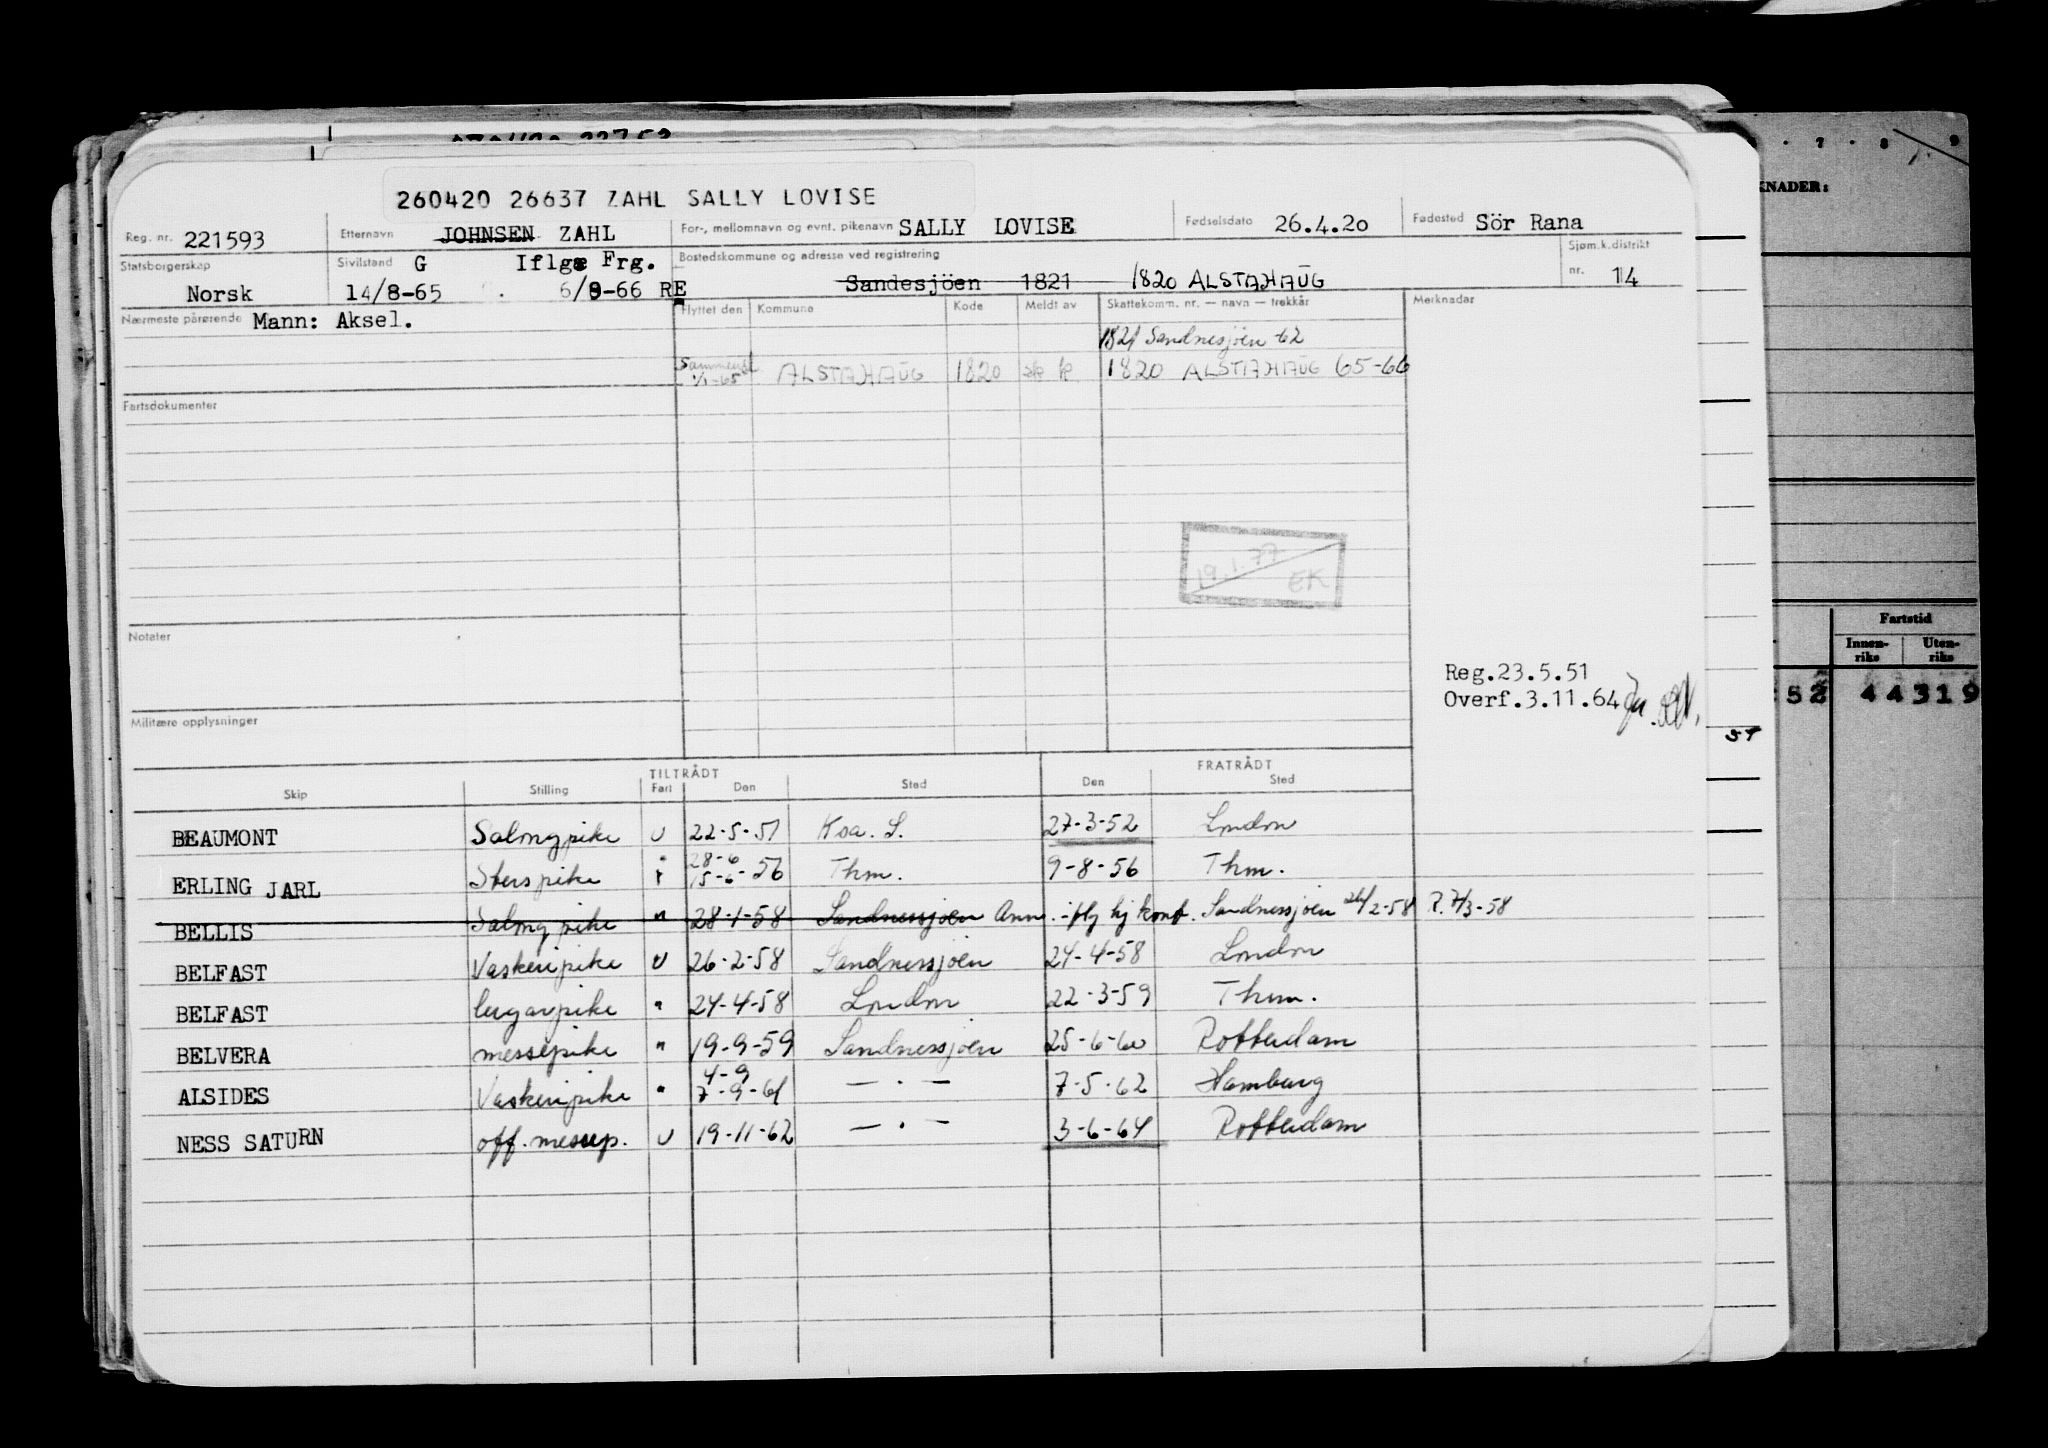 260420 26637 ZAHL SALLY LOVISE
Reg. nr. 221593 Etternavn JOHNSEN ZAHL For-, mellomnavn og evnt. pikenavn SALLY LOVISE Fødselsdato 26.4.20 Fødested Sör Rana
Statsborgerskap Norsk Sivilstand G Iflge Frg. 14/8-65 6/9-66 RE Bostedskommune og adresse ved registrering Sandesjöen 1821 1820 ALSTAHAUG Sjøm.k.distrikt nr. 14
Nærmeste pårørende Mann: Aksel. Flyttet den Kommune Kode Meldt av Skattekomm. nr. — navn — trekkår Merknader
1821 Sandnesjöen -62
Sammensl. 1/1-65 ALSTAHAUG 1820 1820 ALSTAHAUG 65-66
Fartsdokumenter
19.1.77 EK
Notater
Reg.23.5.51
Overf.3.11.64
Militære opplysninger
TILTRÅDT FRATRÅDT
Skip Stilling Fart Den Sted Den Sted
BEAUMONT Salongpike U 22-5-51 Ksa. S. 27-3-52 London
ERLING JARL Sterspike " 28-6 15-6-56 Thm. 9-8-56 Thm.
BELLIS Salongpike " 28-1-58 Sandnessjöen Ann. iflg hj konf. Sandnessjöen 26/2-58 R. 7/3-58
BELFAST Vaskeripike U 26-2-58 Sandnessjöen 24-4-58 London
BELFAST lugarpike " 24-4-58 London 22-3-59 Thm.
BELVERA messepike " 19-9-59 Sandnessjöen 25-6-60 Rotterdam
ALSIDES Vaskeripike " 4-9 7-9-61 — . — 7-5-62 Hamburg
NESS SATURN off. messep. U 19-11-62 — . — 3-6-64 Rotterdam
7 8 9
KNADER:
Fartstid
Innen-rike Uten-riks
52 44319
57